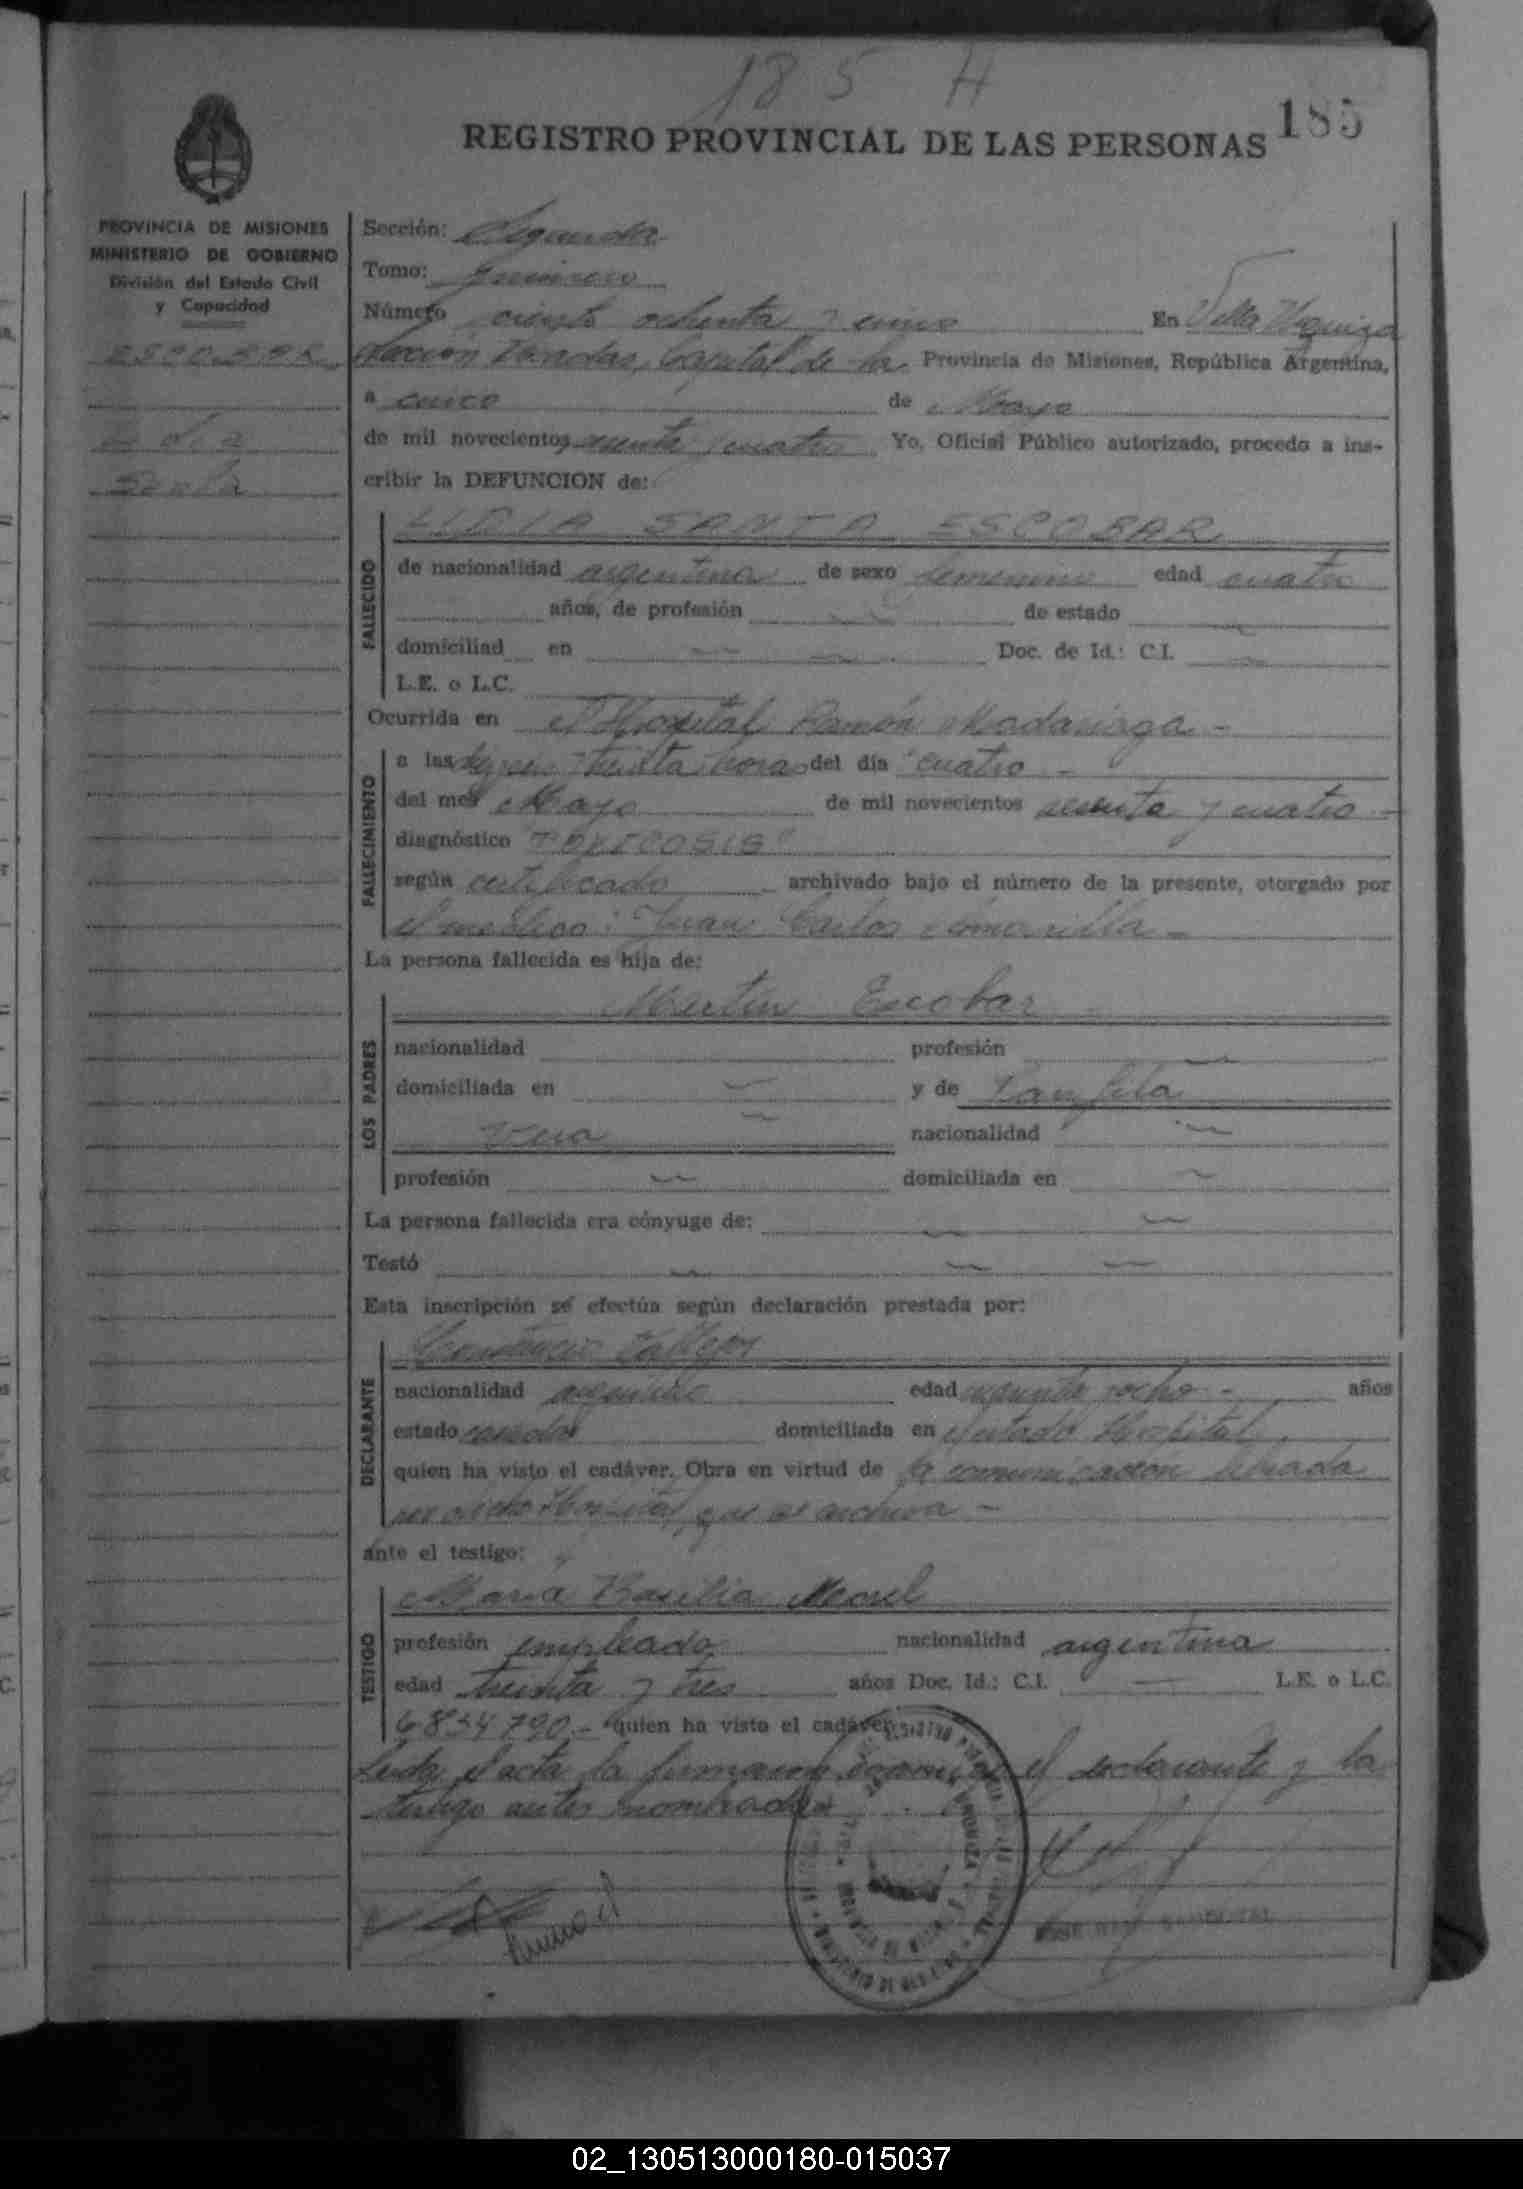 185 H
REGISTRO PROVINCIAL DE LAS PERSONAS 185
PROVINCIA DE MISIONES
MINISTERIO DE GOBIERNO
División del Estado Civil
y Capacidad
ESCOBAR
Lidia
Santa
Sección: Segunda
Tomo: primero
Número ciento ochenta y cinco En Villa Urquiza
Sección Posadas, Capital de la Provincia de Misiones, República Argentina,
a cinco de Mayo
de mil novecientos sesenta y cuatro Yo, Oficial Público autorizado, procedo a ins-
cribir la DEFUNCION de:
FALLECIDO
LIDIA SANTA ESCOBAR
de nacionalidad argentina de sexo femenino edad cuatro
años, de profesión de estado
domiciliad en Doc. de Id.: C.I.
L.E. o L.C.
Ocurrida en el Hospital Ramón Madariaga -
FALLECIMIENTO
a las treinta horas del día cuatro -
del mes Mayo de mil novecientos sesenta y cuatro -
diagnóstico "TOXICOSIS"
según certificado archivado bajo el número de la presente, otorgado por
el médico: Juan Carlos -
La persona fallecida es hija de:
LOS PADRES
Martín Escobar
nacionalidad profesión
domiciliada en y de Panfila
Vera nacionalidad
profesión domiciliada en
La persona fallecida era cónyuge de:
Testó
Esta inscripción se efectúa según declaración prestada por:
DECLARANTE
Constancio Vallejos
nacionalidad argentino edad y ocho - años
estado casado domiciliada en el citado Hospital
quien ha visto el cadáver. Obra en virtud de la comunicación librada
por dicho Hospital, que se archiva -
ante el testigo:
TESTIGO
María Basilia Morel
profesión empleada nacionalidad argentina
edad treinta y tres años Doc. Id.: C.I. L.E. o L.C.
6834790.- quien ha visto el cadáver.
Leída el acta la firman conmigo el declarante y la
testigo antes nombrada
02_130513000180-015037